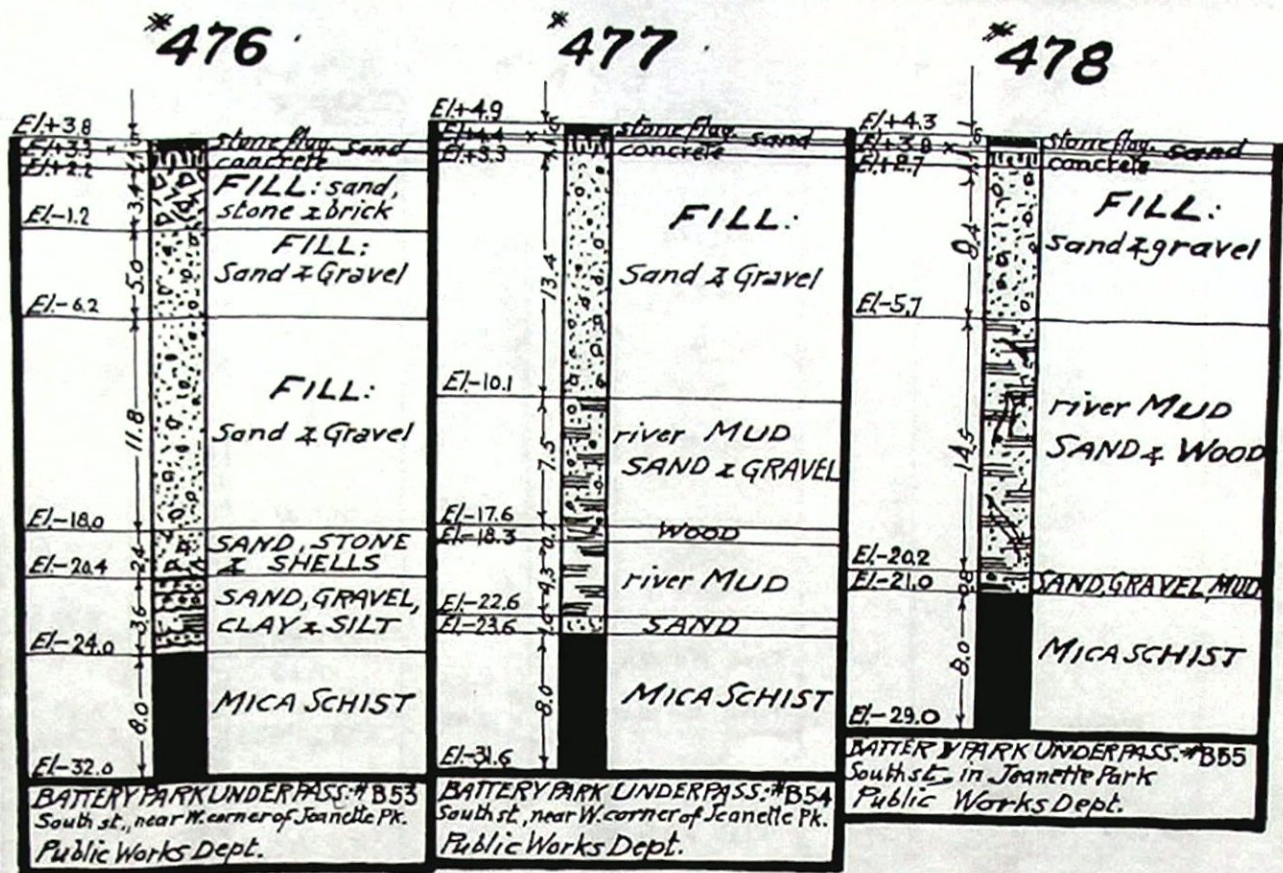 #476
El.+3.8
El.+3.3
El.+2.2
El.-1.2
El.-6.2
El.-18.0
El.-20.4
El.-24.0
El.-32.0
.5
1.1
3.4
5.0
11.8
2.4
3.6
8.0
stone flag. sand
concrete
FILL: sand,
stone & brick
FILL:
Sand & Gravel
FILL:
Sand & Gravel
SAND, STONE
& SHELLS
SAND, GRAVEL,
CLAY & SILT
MICA SCHIST
BATTERY PARK UNDERPASS: #B53
South st., near W. corner of Jeanette Pk.
Public Works Dept.
#477
El.+4.9
El.+4.4
El.+3.3
El.-10.1
El.-17.6
El.-18.3
El.-22.6
El.-23.6
El.-31.6
.5
1.1
13.4
7.5
0.7
4.3
1.0
8.0
stone flag. sand
concrete
FILL:
Sand & Gravel
river MUD
SAND & GRAVEL
WOOD
river MUD
SAND
MICA SCHIST
BATTERY PARK UNDERPASS: #B54
South st., near W. corner of Jeanette Pk.
Public Works Dept.
#478
El.+4.3
El.+3.8
El.+2.7
El.-5.7
El.-20.2
El.-21.0
El.-29.0
.5
1.1
8.4
14.5
0.8
8.0
stone flag. sand
concrete
FILL:
Sand & gravel
river MUD
SAND & WOOD
SAND, GRAVEL, MUD
MICA SCHIST
BATTERY PARK UNDERPASS: #B55
South st., in Jeanette Park
Public Works Dept.